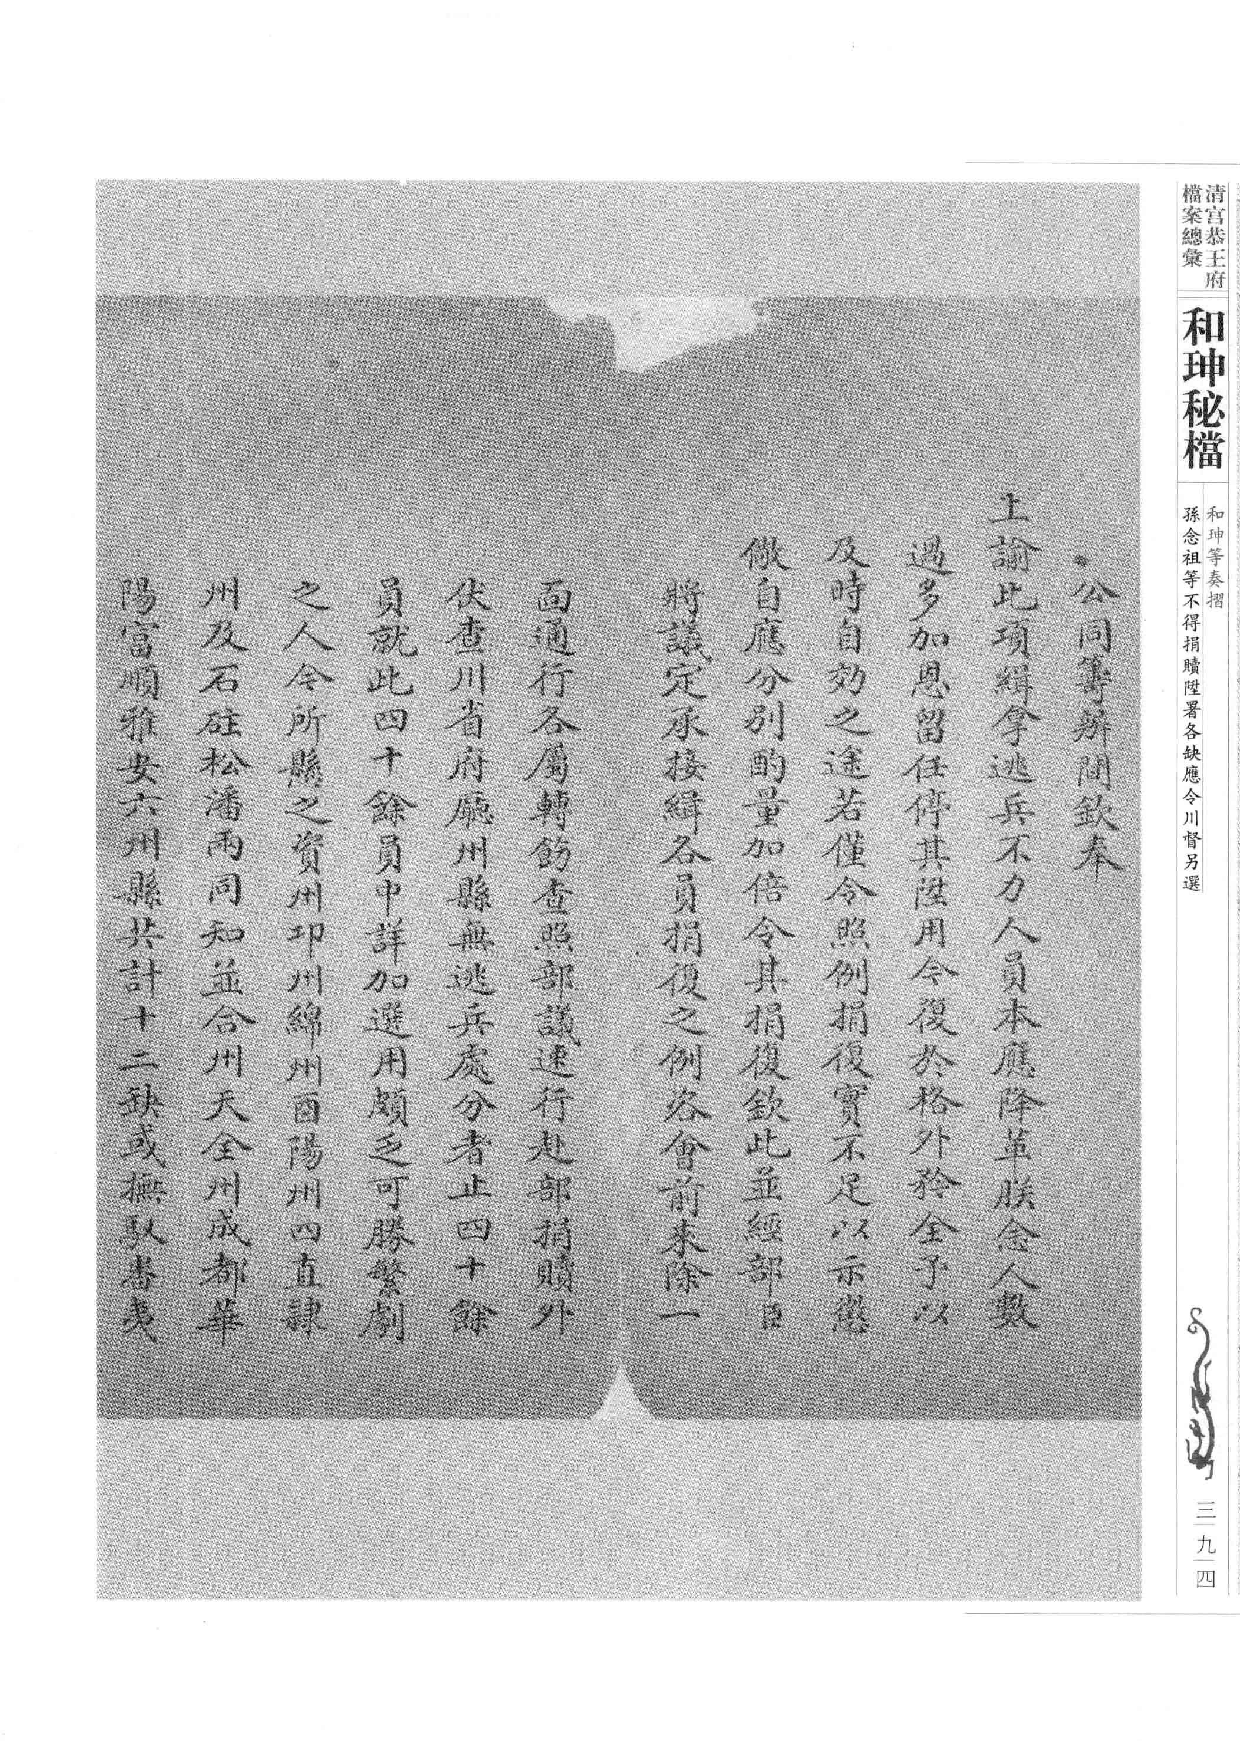 清宮恭王府
檔案總彙
和珅秘檔
和珅等奏摺
孫念祖等不得捐贖陞署各缺應令川督另選
三九四
公同籌辦間欽奉
上諭此項緝拿逃兵不力人員本應降革朕念人數
過多加恩留任停其陞用令復於格外矜全予以
及時自効之途若僅令照例捐復實不足以示懲
儆自應分別酌量加倍令其捐復欽此並經部臣
將議定承接緝各員捐復之例咨會前來除一
面通行各屬轉飭查照部議速行赴部捐贖外
伏查川省府廳州縣無逃兵處分者止四十餘
員就此四十餘員中詳加選用頗乏可勝繁劇
之人今所懸之資州邛州綿州酉陽州四直隸
州及石砫松潘兩同知並合州天全州成都華
陽富順雅安六州縣共計十二缺或撫馭番夷